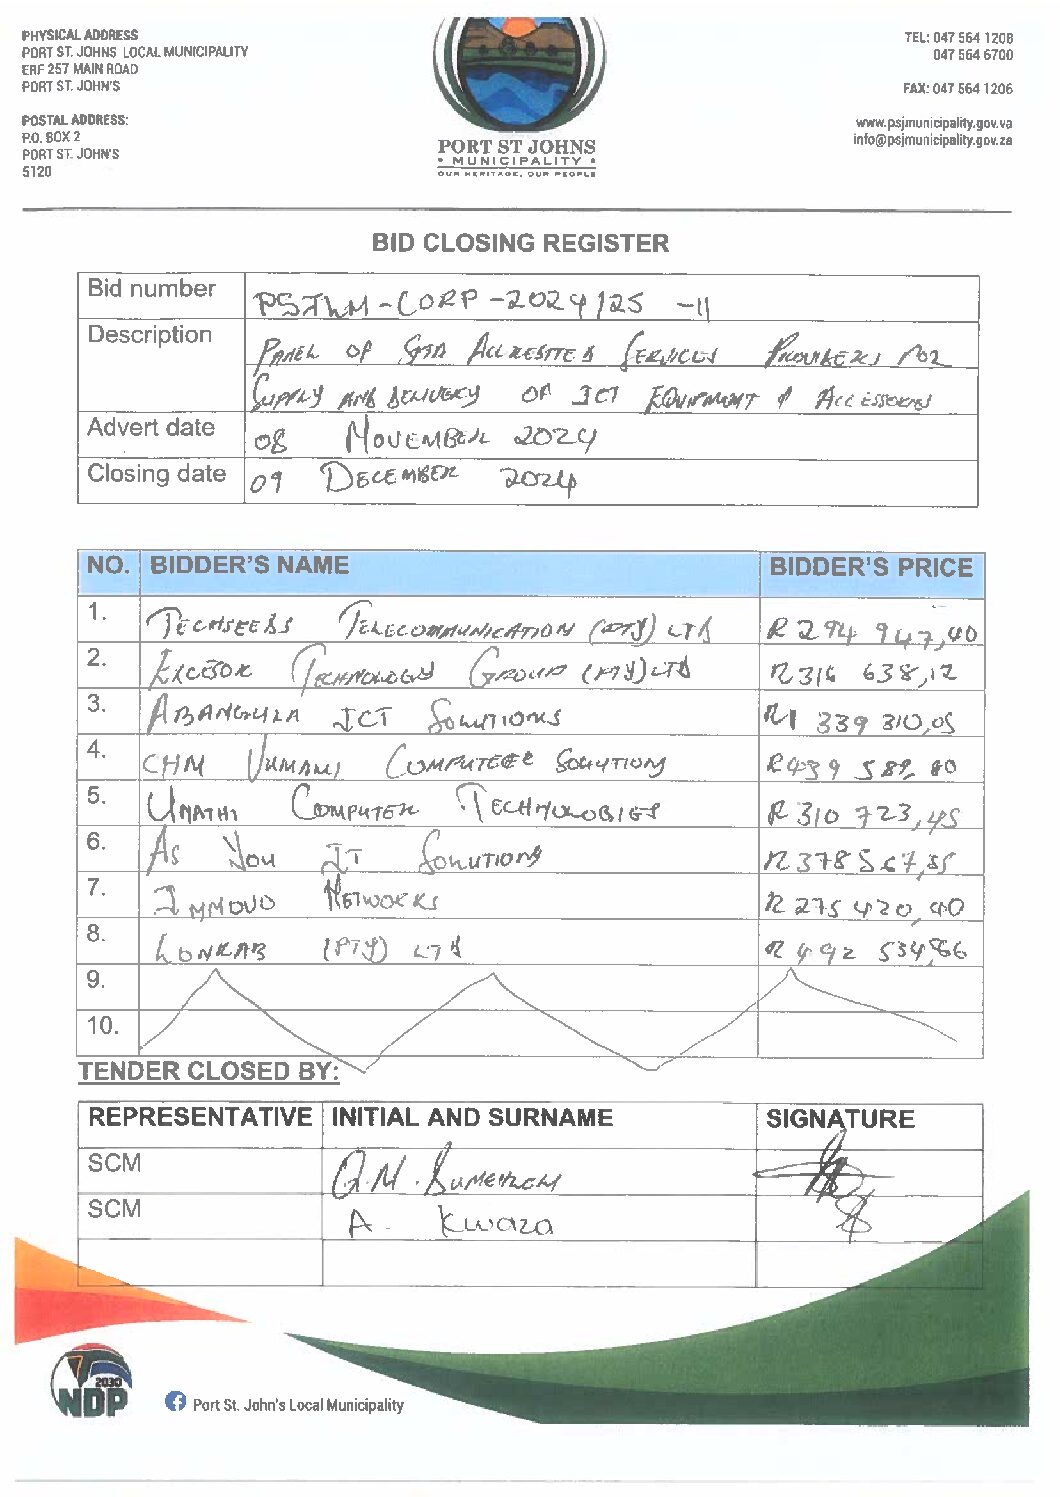 PHYSICAL ADDRESS
PORT ST. JOHNS LOCAL MUNICIPALITY
ERF 257 MAIN ROAD
PORT ST. JOHN'S
POSTAL ADDRESS:
P.O. BOX 2
PORT ST. JOHN'S
5120
PORT ST JOHNS
• MUNICIPALITY •
OUR HERITAGE, OUR PEOPLE
TEL: 047 564 1208
047 564 6700
FAX: 047 564 1206
www.psjmunicipality.gov.va
info@psjmunicipality.gov.za
BID CLOSING REGISTER
Bid number PSJLM-CORP-2024/25 -11
Description PANEL OF ACCREDITED SERVICES PROVIDERS FOR
SUPPLY AND DELIVERY OF ICT EQUIPMENT & ACCESSORIES
Advert date 08 NOVEMBER 2024
Closing date 09 DECEMBER 2024
NO. BIDDER'S NAME BIDDER'S PRICE
1. TECHSEEDS TELECOMMUNICATION (PTY) LTD R 294 947,40
2. TECHNOLOGY GROUP (PTY) LTD R 316 638,12
3. ABANGULA ICT SOLUTIONS R1 339 310,05
4. CHM VUMANI COMPUTERE SOLUTIONS R439
5. UNATHI COMPUTER TECHNOLOGIES R 310 723,45
6. AS YOU IT SOLUTIONS R 378 567,35
7. IMMOVO NETWORKS R 275 420,40
8. LONKAB (PTY) LTD R 492 534,66
9.
10.
TENDER CLOSED BY:
REPRESENTATIVE INITIAL AND SURNAME SIGNATURE
SCM
SCM A. Kwaza
2030
NDP
Port St. John's Local Municipality